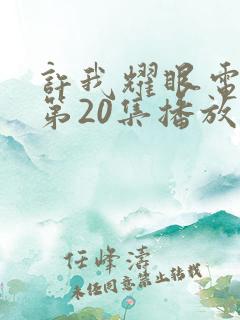 許我耀眼電
第20集播放
任峰濤
未經同意禁止轉載